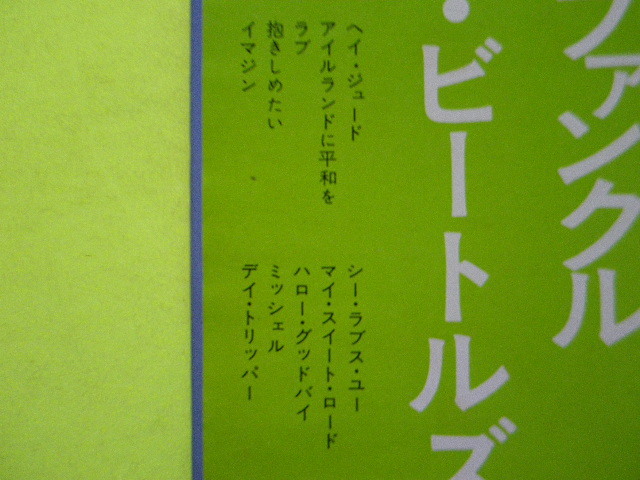 ファンクル
・ビートルズ
ヘイ・ジュード
アイルランドに平和を
ラブ
抱きしめたい
イマジン
シー・ラブス・ユー
マイ・スイート・ロード
ハロー・グッドバイ
ミッシェル
デイ・トリッパー